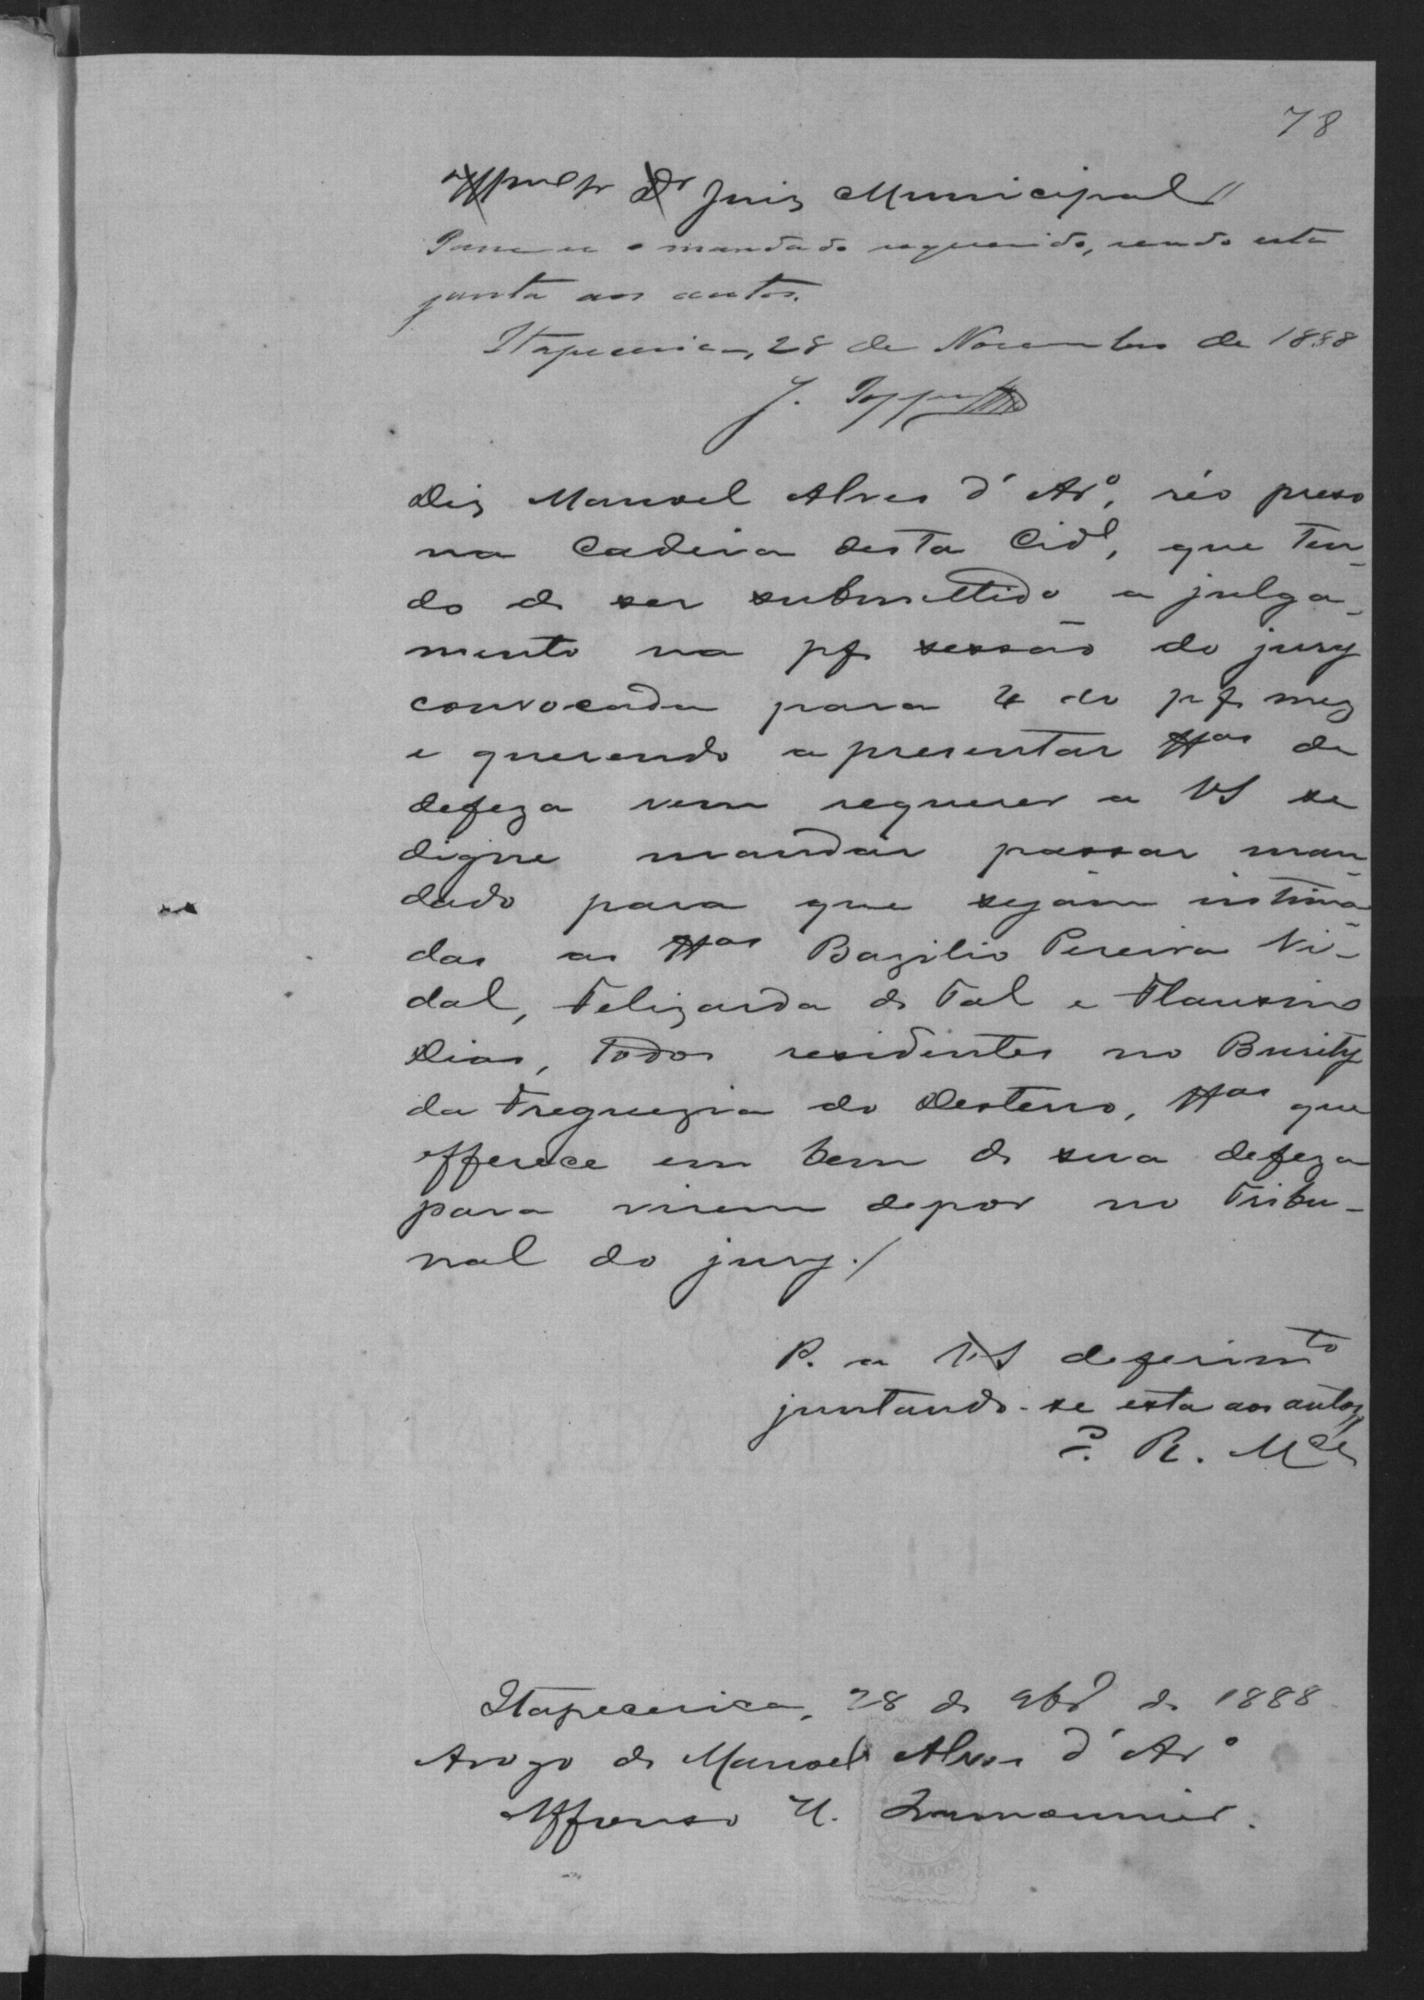 78
Dr Juiz Municipal
Passe-se o mandado requerido, sendo esta
junta aos autos.
Itapecerica, 28 de Novembro de 1888
J.
Diz Manoel Alves d'Arº, réo preso
na Cadeia desta Cidᵉ, que ten-
do de ser submettido a julga-
mento na pf sessão do jury
convocada para 4 do pf mez
e querendo apresentar ttas de
defeza vem requerer a VS se
digne mandar passar man-
dado para que sejam intima-
das as ttas Bazilio Pereira Vi-
dal, Felizarda de Tal e Flausino
Dias, todos residentes no Burity
da Freguezia do Desterro, ttas que
offerece em bem de sua defeza
para virem depor no Tribu-
nal do jury./
P. a VS deferimto
juntando-se esta aos autos
E. R. Mce
Itapecerica, 28 de 9brº de 1888
Arogo de Manoel Alves d'Arº
Affonso H. Lamounier.